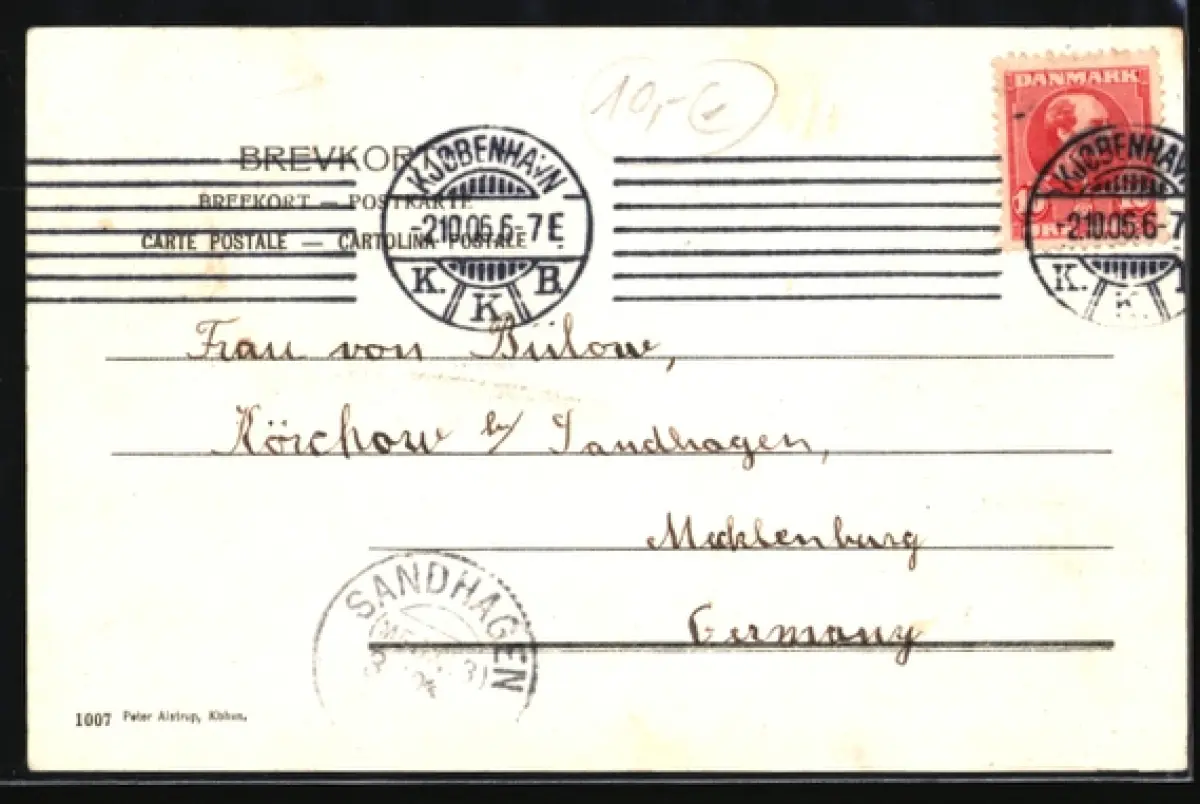 10,-
DANMARK
10 10
BREVKORT
BREFKORT — POSTKARTE
CARTE POSTALE — CARTOLINA POSTALE
KJØBENHAVN
-2.10.06.6-7E
K. K. B.
KJØBENHAVN
-2.10.06.6-7
K. K.
Frau von Bülow,
Körchow b/ Sandhagen,
Mecklenburg
Germany
SANDHAGEN
1007 Peter Alstrup, Kbhvn.